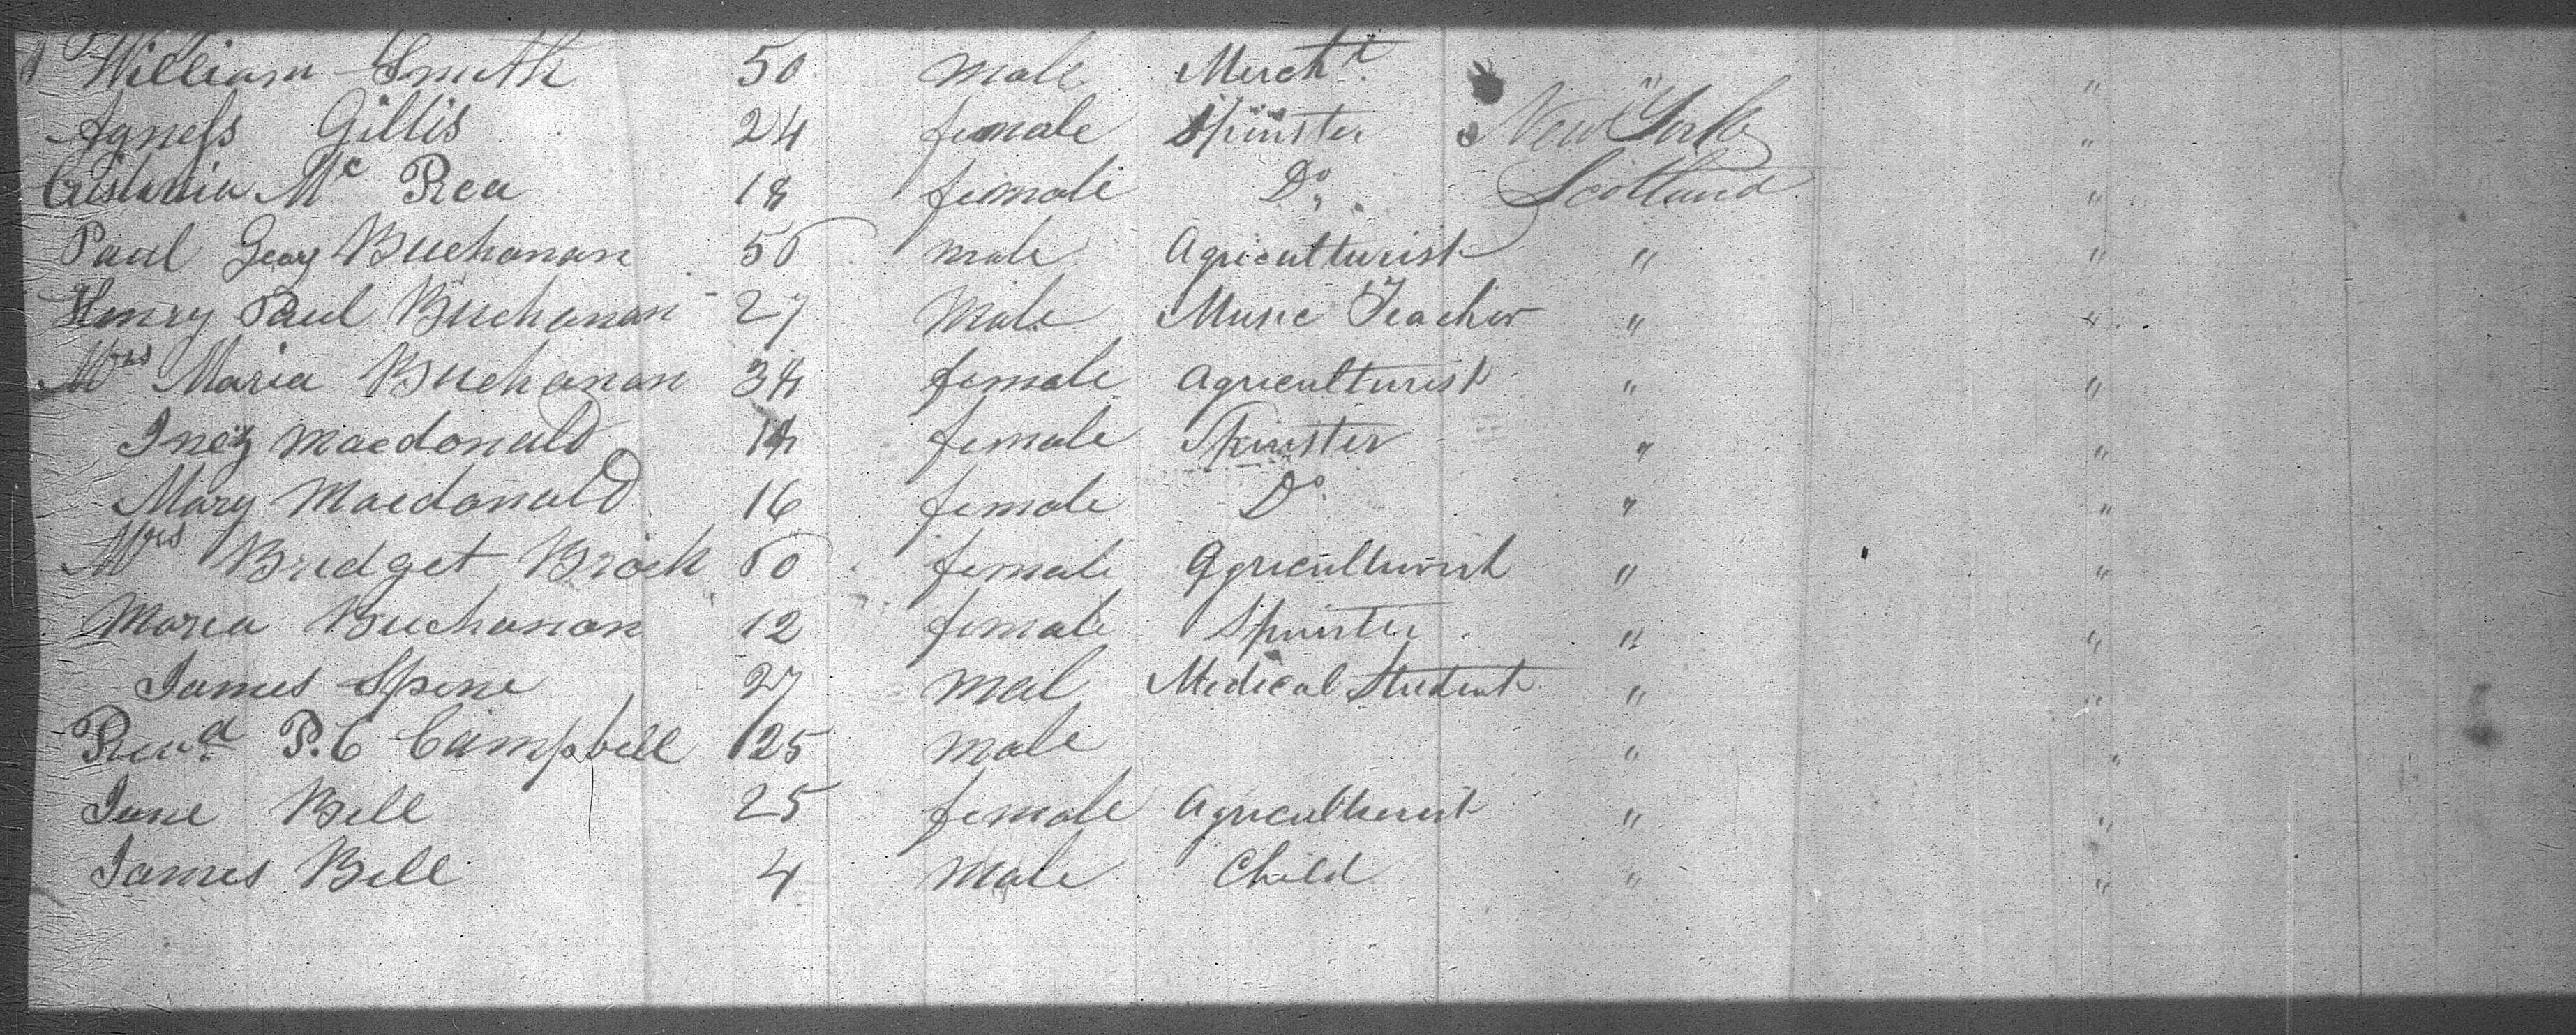 William Smith 50 male Mercht " "
Agness Gillis 24 female Spinster New York "
Cristinia Mc Rea 18 female Do Scotland "
Paul Geoy Buchanan 50 male Agriculturist " "
Henry Paul Buchanan 27 Male Music Teacher " "
Mrs Maria Buchanan 38 female agriculturist " "
Inez Macdonald female Spinster " "
Mary Macdonald 16 female Do " "
Mrs Bridget Brock 50 female Agriculturist " "
Maria Buchanan 12 female Spinster " "
James Spene 27 mal Medical Student " "
Revd. P. C Campbell 25 male " "
Jane Bell 25 female Agriculturist " "
James Bell 4 Male Child " "